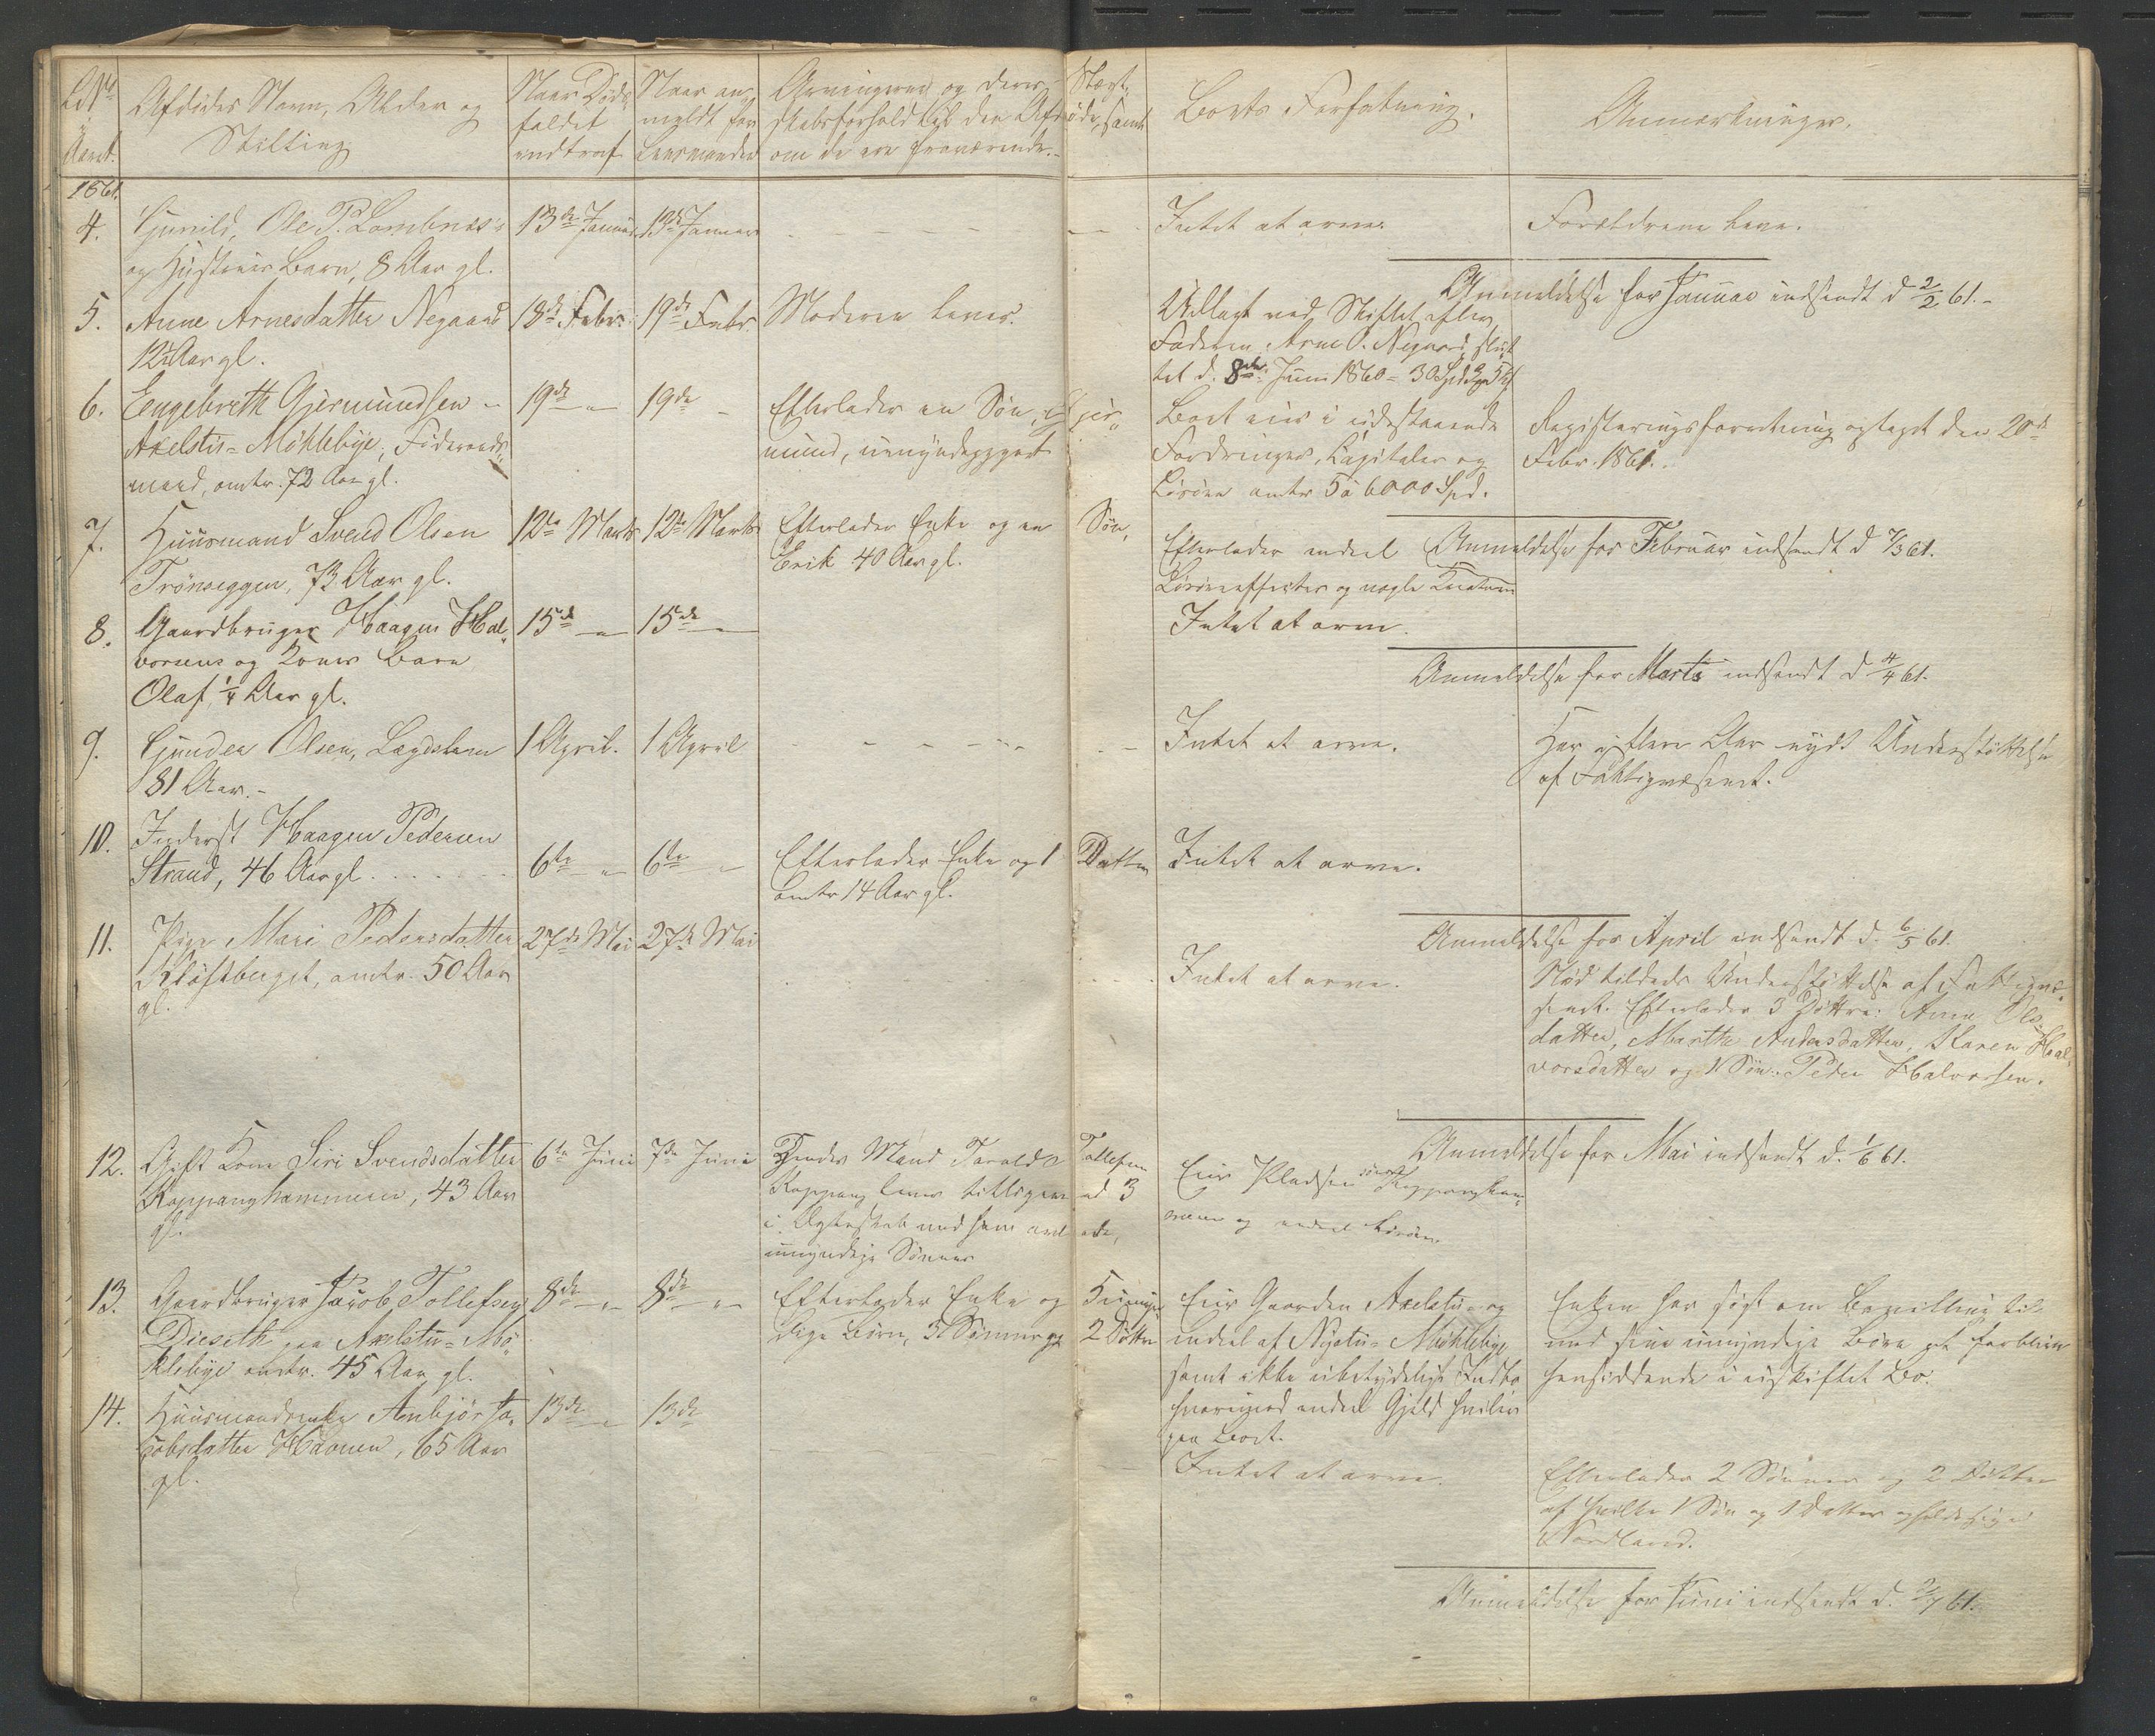 L.No
Aaret.
Afdødes Navn, Alder og
Stilling
Naar Døds
faldet
indtraf
Naar an-
meldt for
Lensmanden
Arvingerne og deres Slægt-
skabsforhold til den Afdøde, samt
om de ere fraværende.
Boets Forfatning.
Anmærkninger.
1861.
4. Gunild, Ole P. Lombnæs's
og Hustrues Barn, 8 Aar gl.
13de Januar 13de Januar
Intet at arve.
Forældrene leve.
Anmeldelse for Januar indsendt d 2/2 61.
5. Anne Arnesdatter Negaard
12½ Aar gl.
18de Febr. 19de Febr.
Moderen lever.
Udlagt ved Skiftet efter
Faderen, Arne O. Negaard, slut
tet d. 8de Juni 1860 = 30 Spd
6. Engebreth Gjermundsen
Axelstu-Möklebye, Föderaads-
mand, omtr. 72 Aar gl.
19de " 19de "
Efterlader en Søn, Gjer-
mund, umyndiggjort
Boet eier i udestaaende
Fordringer, Capitaler og
Løsøre omtr 5 à 6000 Spd.
Registreringsforretning optaget den 20de
Febr. 1861.
Anmeldelse for Februar indsendt d 7/3 61.
7. Huusmand Svend Olsen
Trönseggen, 73 Aar gl.
12te Marts 12te Marts
Efterlader Enke og en Søn,
Erik 40 Aar gl.
Efterlader endeel
Løsøreeffecter og nogle Kreaturer
8. Gaardbruger Haagen Hal-
vorsens og Kones Barn
Olaf, ¼ Aar gl.
15de " 15de "
Intet at arve.
Anmeldelse for Marts indsendt d 4/4 61.
9. Gunder Olsen, Lægdslem
81 Aar.
1 April. 1 April
Intet at arve.
Har i flere Aar nydt Understøttelse
af Fattigvæsenet.
10. Inderst Haagen Pedersen
Strand, 46 Aar gl.
6te " 6te "
Efterlader Enke og 1 Datter
omtr 14 Aar gl.
Intet at arve.
Anmeldelse for April indsendt d. 6/5 61.
11. Pige Mari Pedersdatter
Kløftberget, omtr. 50 Aar
gl.
27de Mai 27de Mai
Intet at arve.
Nød tildeels Understøttelse af Fattigvæ-
senet. Efterlader 3 Døttre: Anne Ols-
datter, Marthe Andersdatter, Karen Hal-
vorsdatter og 1 Søn: Peder Halvorsen.
Anmeldelse for Mai indsendt d. 1/6 61.
12. Gift Kone Siri Svendsdatter
Koppanghammeren, 43 Aar
gl.
6te Juni 7de Juni
Hendes Mand Tarald Tollefsen
Koppang lever tilligemed 3
i Ægteskab med ham avlede,
umyndige Sønner
Eier Pladsen Koppangham-
meren og endeel Løsøre.
13. Gaardbruger Jacob Tollefsen
Dieseth paa Axelstu-Mö-
klebye omtr. 45 Aar gl.
8de " 8de "
Efterlader Enke og 5 umyn
dige Børn, 3 Sønner og 2 Døttre
Eier Gaarden Axelstu- og
endeel af Nystu-Möklebye
samt ikke ubetydeligt Indbo
hvorimod endeel Gjeld hviler
paa Boet.
Enken har søgt om Bevilling til
med sine umyndige Børn at forblive
hensiddende i uskiftet Bo.
14. Huusmandsenke Anbjör Ja-
cobsdatter Haonen, 65 Aar
gl.
13de " 13de
Intet at arve.
Efterlader 2 Sønner og 2 Døttre
af hvilke 1 Søn og 1 Datter opholde sig i
Nordland.
Anmeldelse for Juni indsendt d. 2/7 61.